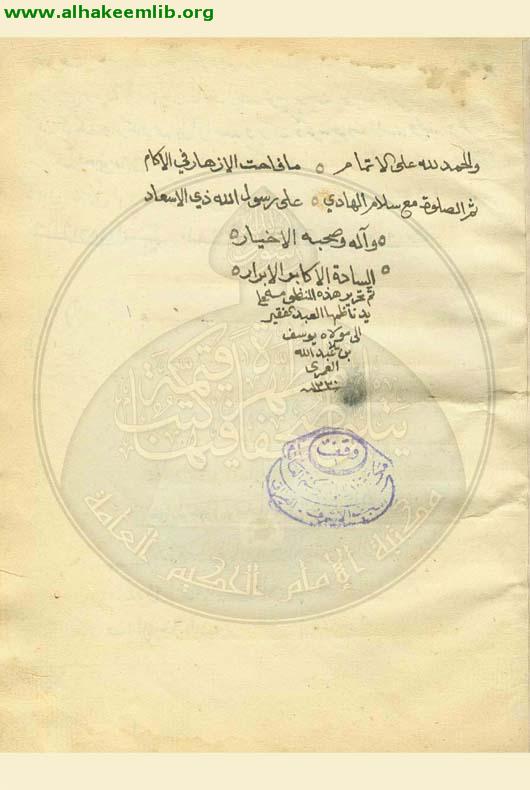 www.alhakeemlib.org
والحمد لله على الاتمام ٥ ما فاحت الازهار في الاكام
ثم الصلوة مع سلام الهادي ٥ على رسول الله ذي الاسعاد
٥ وآله وصحبه الاخيار ٥
٥ السادة الاكابر الابرار ٥
تم تحرير هذه
يد ناظمها العبد الفقير
الى مولاه يوسف
بن ملا عبد الله
العمري
١٣٣٠
وقفت
مكتبة الإمام الحكيم العامة